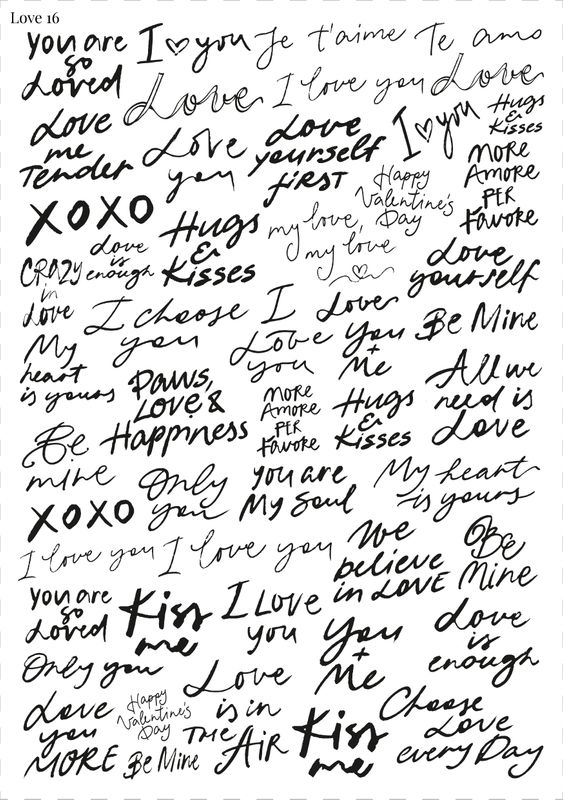 Love 16
you are
so
Loved
I ♡ you
Je t'aime
Te amo
Love
I love you
Love
Love
me
Tender
Love
you
Love
yourself
first
I ♡ you
Hugs
&
Kisses
Happy
Valentine's
Day
MORE
AMORE
PER
Favore
XOXO
Hugs
&
Kisses
my love,
my love
CRAZY
in
Love
Love
is
enough
Love
yourself
I choose
you
I
Love
you
Love
You
+
Me
Be Mine
My
heart
is yours
Paws,
Love &
Happiness
MORE
AMORE
PER
Favore
Hugs
&
Kisses
All we
need is
Love
Be
mine
Only
you
you are
My Soul
My heart
is yours
XOXO
I love you
I love you
We
believe
in LOVE
Be
Mine
you are
so
Loved
Kiss
me
I Love
you
You
+
Me
Love
is
enough
Only you
Love
is in
THE
AiR
Love
you
MORE
Happy
Valentine's
Day
Be Mine
Kiss
me
Choose
Love
every Day